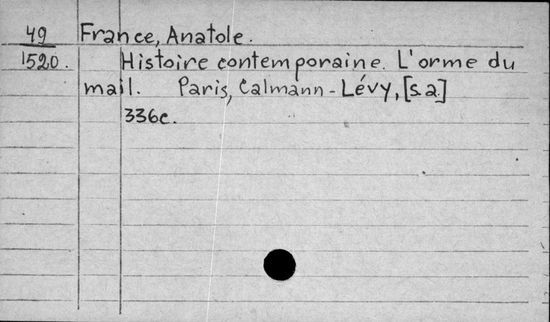 49 France, Anatole.
1520. Histoire contemporaine. L'orme du
mail. Paris, Calmann-Lévy, [s.a.]
336c.